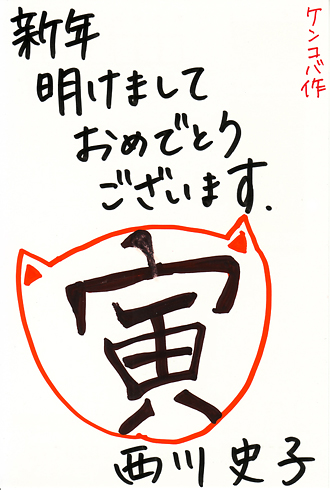 ケンコバ作
新年
明けまして
おめでとう
ございます.
寅
西川史子